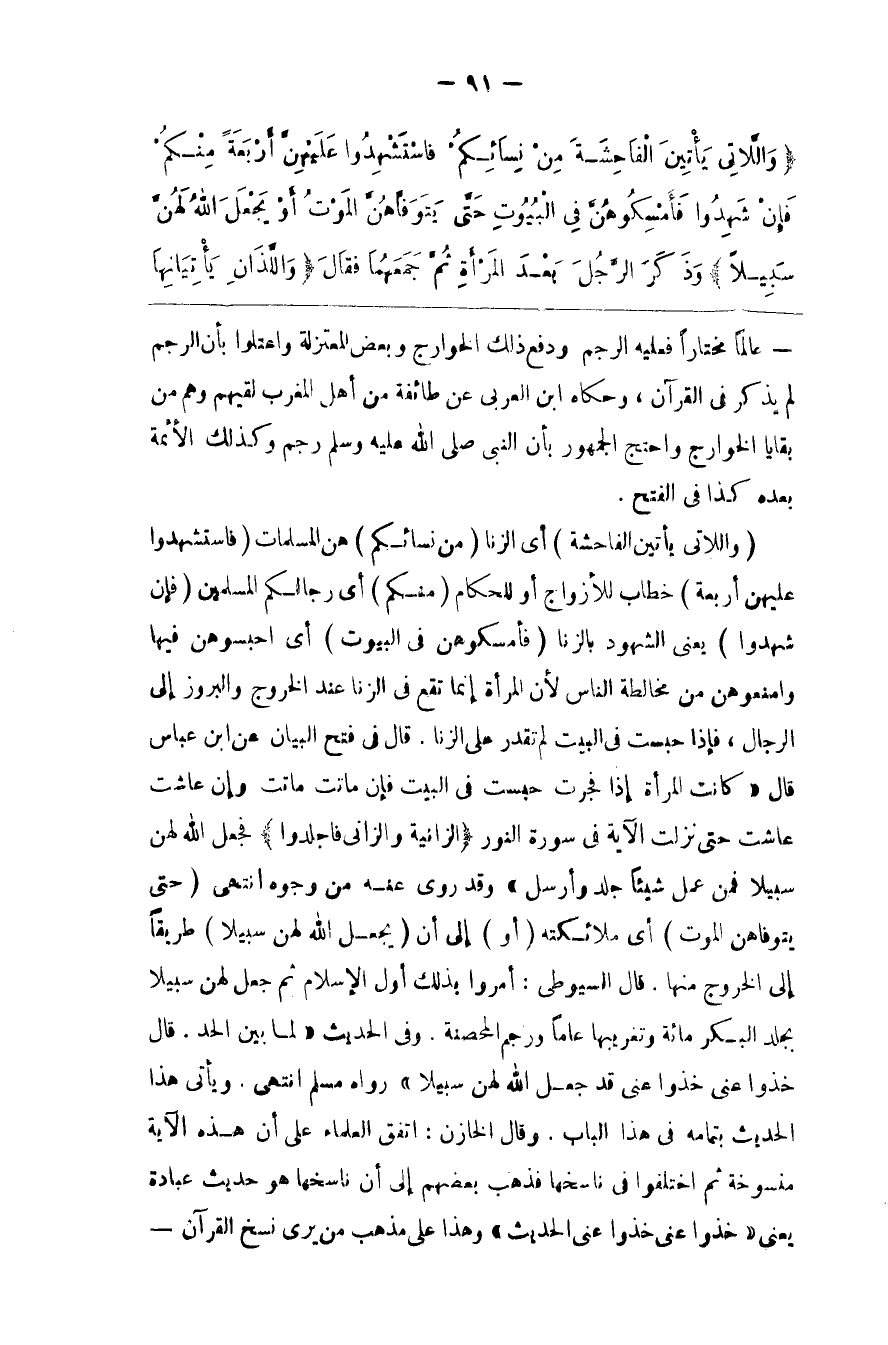 — ٩١ —
﴿ وَاللَّاتِى يَأْتِينَ الْفَاحِشَـةَ مِنْ نِسَائِـكُمْ فاسْتَشْهِدُوا عَلَيْهِنَّ أَرْبَعَةً مِنْـكُمْ
فَإِنْ شَهِدُوا فَأَمْسِكُوهُنَّ فِى الْبُيُوتِ حَتَّى يَتَوَفَّاهُنَّ المَوْتُ أَوْ يَجْعَلَ اللهُ لَهُنَّ
سَبِيـلاً ﴾ وَذَكَرَ الرَّجُلَ بَعْـدَ المَرْأَةِ ثُمَّ جَمَعَهُمَا فقَالَ ﴿ وَاللَّذَانِ يَأْتِيَانِهَا
— عالمًا مختاراً فعليه الرجم ودفع ذلك الخوارج وبعض المعتزلة واعتلوا بأن الرجم
لم يذكر فى القرآن ، وحكاه ابن العربى عن طائفة من أهل المغرب لقيهم وهم من
بقايا الخوارج واحتج الجمهور بأن النبى صلى الله عليه وسلم رجم وكـذلك الأئمة
بعده كـذا فى الفتح .
( واللاتى يأتين الفاحشة ) أى الزنا ( من نسائـكم ) هن المسلمات ( فاستشهدوا
عليهن أربعة ) خطاب للأزواج أو للحكام ( منـكم ) أى رجالـكم المسلمين ( فإن
شهدوا ) يعنى الشهود بالزنا ( فأمسكوهن فى البيوت ) أى احبسوهن فيها
وامنعوهن من مخالطة الناس لأن المرأة إنما تقع فى الزنا عند الخروج والبروز إلى
الرجال ، فإذا حبست فى البيت لم تقدر على الزنا . قال فى فتح البيان عن ابن عباس
قال « كانت المرأة إذا فجرت حبست فى البيت فإن ماتت ماتت وإن عاشت
عاشت حتى نزلت الآية فى سورة النور ﴿الزانية والزانى فاجلدوا ﴾ فجعل الله لهن
سبيلا فمن عمل شيئاً جلد وأرسل » وقد روى عنـه من وجوه انتهى ( حتى
يتوفاهن الموت ) أى ملائـكته ( أو ) إلى أن ( يجعـل الله لهن سبيلا ) طريقاً
إلى الخروج منها . قال السيوطى : أمروا بذلك أول الإسلام ثم جعل لهن سبيلا
بجلد البـكر مائة وتغريبها عاماً ورجم المحصنة . وفى الحديث « لمـا بين الحد . قال
خذوا عنى خذوا عنى قد جعـل الله لهن سبيلا » رواه مسلم انتهى . ويأتى هذا
الحديث بتمامه فى هذا الباب . وقال الخازن : اتفق العلماء على أن هـذه الآية
منسوخة ثم اختلفوا فى ناسخها فذهب بعضهم إلى أن ناسخها هو حديث عبادة
يعنى « خذوا عنى خذوا عنى الحديث » وهذا على مذهب من يرى نسخ القرآن —